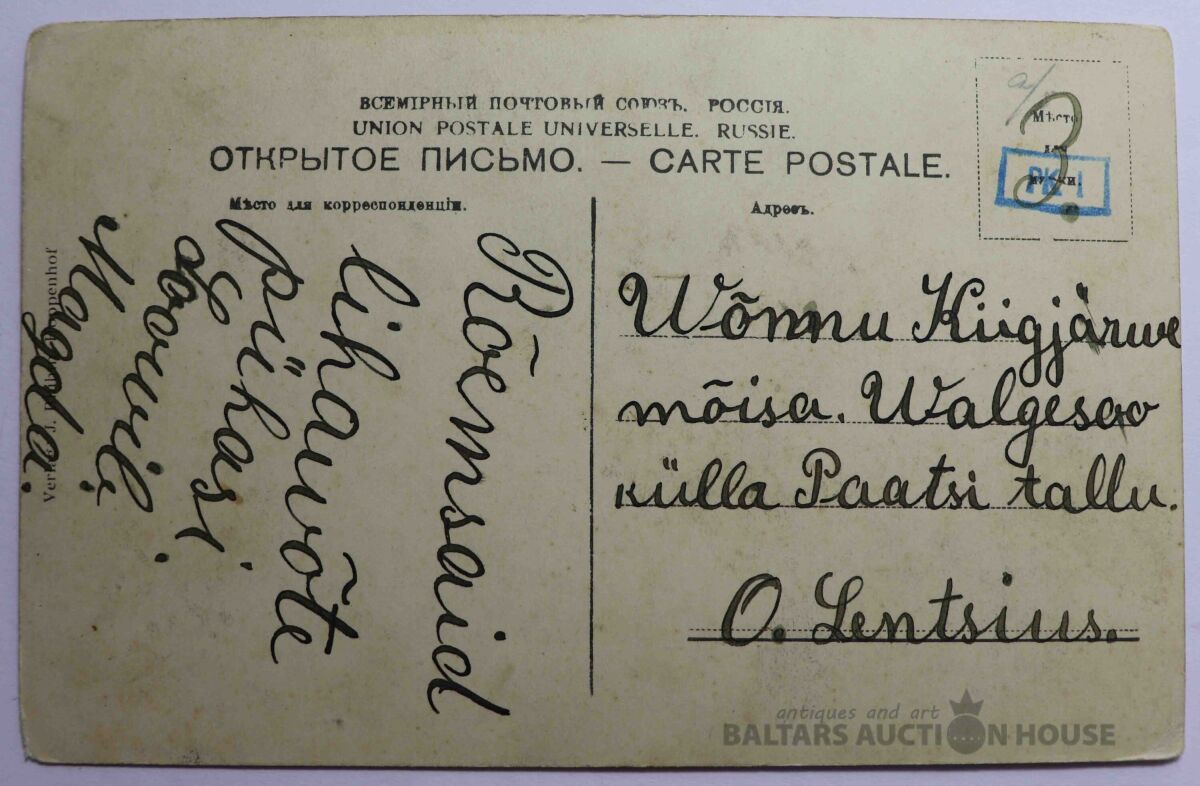 ВСЕМІРНЫЙ ПОЧТОВЫЙ СОЮЗЪ. РОССІЯ.
UNION POSTALE UNIVERSELLE. RUSSIE.
ОТКРЫТОЕ ПИСЬМО. — CARTE POSTALE.
Мѣсто для корреспонденціи.
Адресъ.
Мѣсто
для
марки.
PK-1
3.
Rõemsaid
lihawõte
pühasi
Soovib
Magda.
Wõnnu Kiigjärwe
mõisa. Walgesoo
külla Paatsi tallu.
O. Lentsius.
Verl
oppenhof
antiques and art
BALTARS AUCTION HOUSE